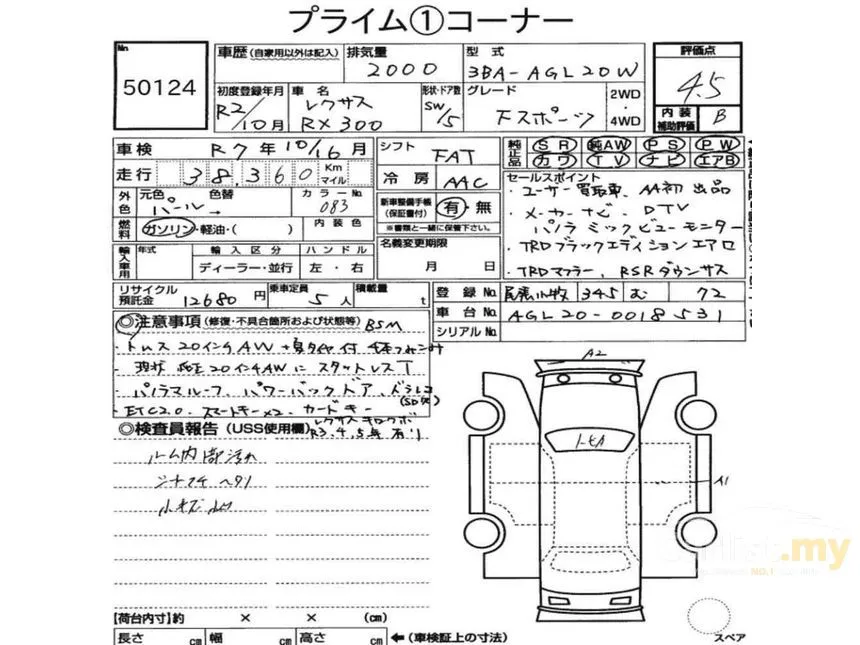 プライム①コーナー
No.
50124
車歴 (自家用以外は記入)
排気量
2000
型 式
3BA-AGL20W
評価点
4.5
内装補助評価
B
初度登録年月
R2/10月
車 名
レクサス
RX300
形状・ドア数
SW/5
グレード
Fスポーツ
2WD
・
4WD
車検 R7年10/16月
シフト
FAT
純正品
SR 純AW PS PW
カワ TV ナビ エアB
走行 38,360 Km マイル
冷房
AAC
セールスポイント
・ユーザー買取車、AA初出品
・メーカーナビ、DTV
パノラミックビューモニター
・TRDブラックエディションエアロ
・TRDマフラー、RSRダウンサス
外色
元色 色替
パール →
カラーNo.
083
新車整備手帳
(保証書付)
有・無
※書類と一緒に保管下さい。
燃料
ガソリン・軽油・( )
内装色
名義変更期限
月 日
輸入車用
年式
輸入区分
ディーラー・並行
ハンドル
左・右
リサイクル預託金
12680円
乗車定員
5人
積載量
t
登録No.
尾張小牧 345 む 72
車台No.
AGL20-0018531
シリアルNo.
◎注意事項 (修復・不具合箇所および状態等) BSM
・現状 純正20インチAWにスタッドレスT
・パノラマルーフ、パワーバックドア、ドラレコ
(SD欠)
・ETC2.0、スマートキー×2、カードキー
R3.4.5年有り
◎検査員報告 (USS使用欄)
ルーム内部汚れ
小キズ
A2
A1
【荷台内寸】約 × × (cm)
長さ cm 幅 cm 高さ cm
←(車検証上の寸法)
スペア
.my
NO.1